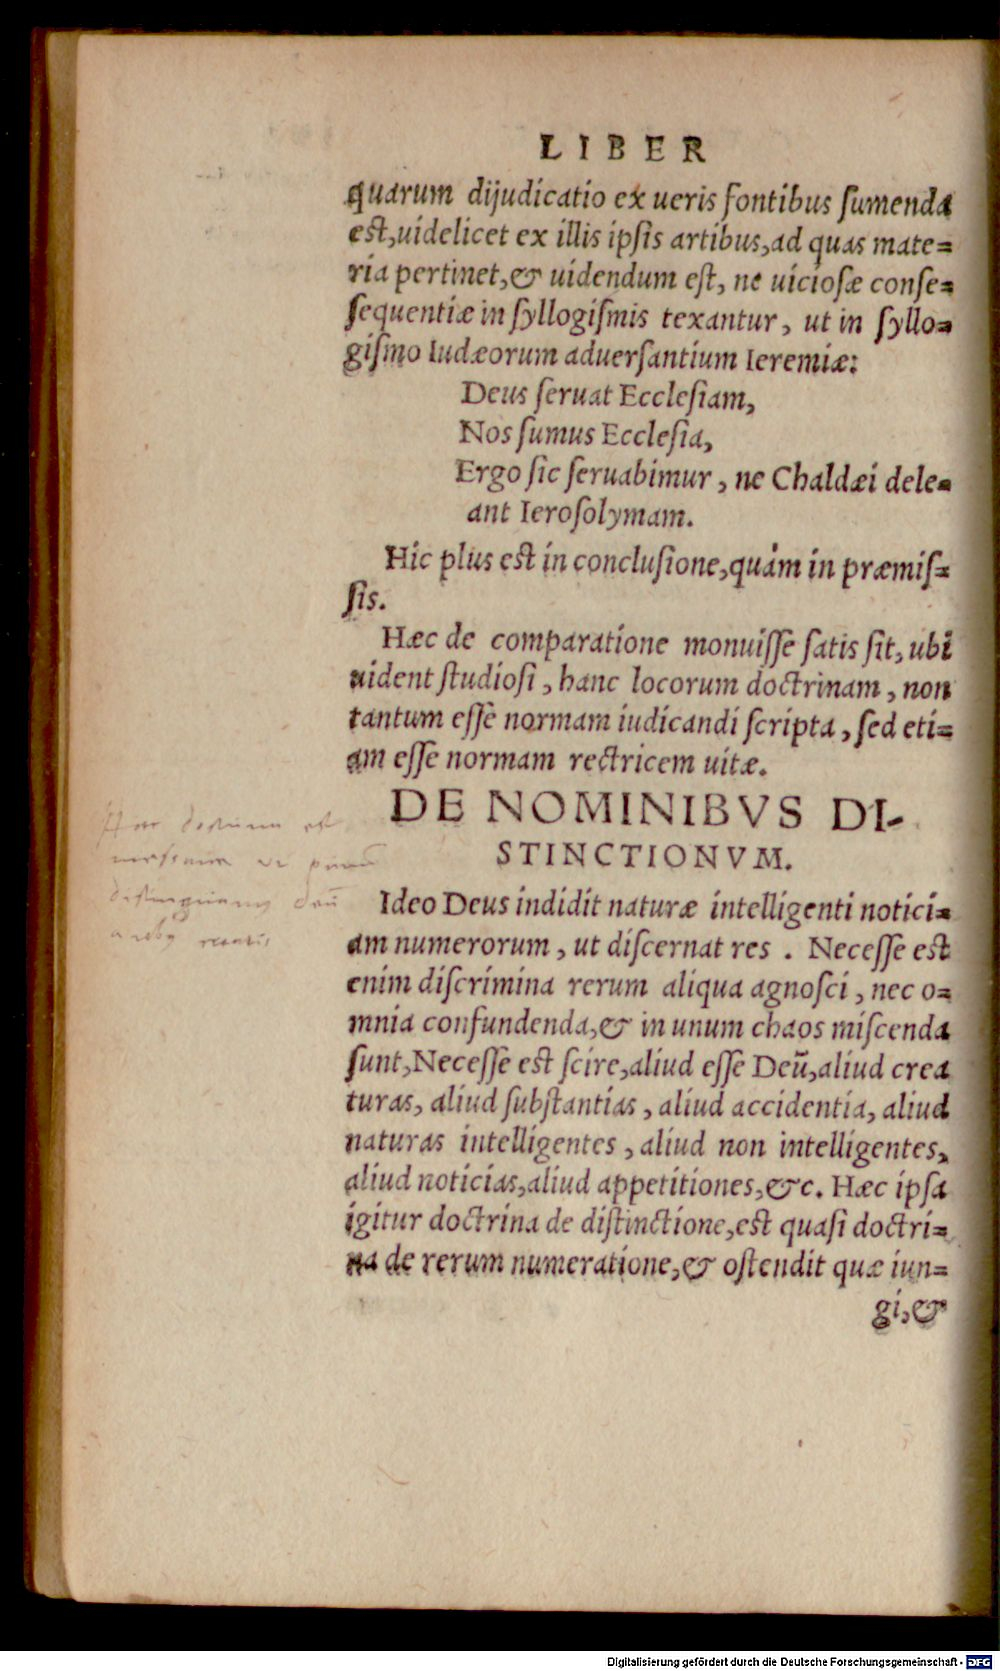 LIBER
quarum dijudicatio ex ueris fontibus ſumenda
eſt,uidelicet ex illis ipſis artibus,ad quas mate=
ria pertinet,& uidendum eſt, ne uicioſæ conſe=
ſequentiæ in ſyllogiſmis texantur, ut in ſyllo=
giſmo Iudæorum aduerſantium Ieremiæ:
Deus ſeruat Eccleſiam,
Nos ſumus Eccleſia,
Ergo ſic ſeruabimur, ne Chaldæi dele=
ant Ieroſolymam.
Hic plus eſt in concluſione,quàm in præmiſ=
ſis.
Hæc de comparatione monuiſſe ſatis ſit, ubi
uident ſtudioſi, hanc locorum doctrinam, non
tantum eſſe normam iudicandi ſcripta, ſed eti=
am eſſe normam rectricem uitæ.
DE NOMINIBVS DI-
STINCTIONVM.
Ideo Deus indidit naturæ intelligenti notici=
am numerorum, ut diſcernat res . Neceſſe eſt
enim diſcrimina rerum aliqua agnoſci, nec o=
mnia confundenda,& in unum chaos miſcenda
ſunt,Neceſſe eſt ſcire,aliud eſſe Deū,aliud crea
turas, aliud ſubſtantias, aliud accidentia, aliud
naturas intelligentes, aliud non intelligentes,
aliud noticias,aliud appetitiones,&c. Hæc ipſa
igitur doctrina de diſtinctione,eſt quaſi doctri=
na de rerum numeratione,& oſtendit quæ iun=
gi,&
Digitalisierung gefördert durch die Deutsche Forschungsgemeinschaft - DFG